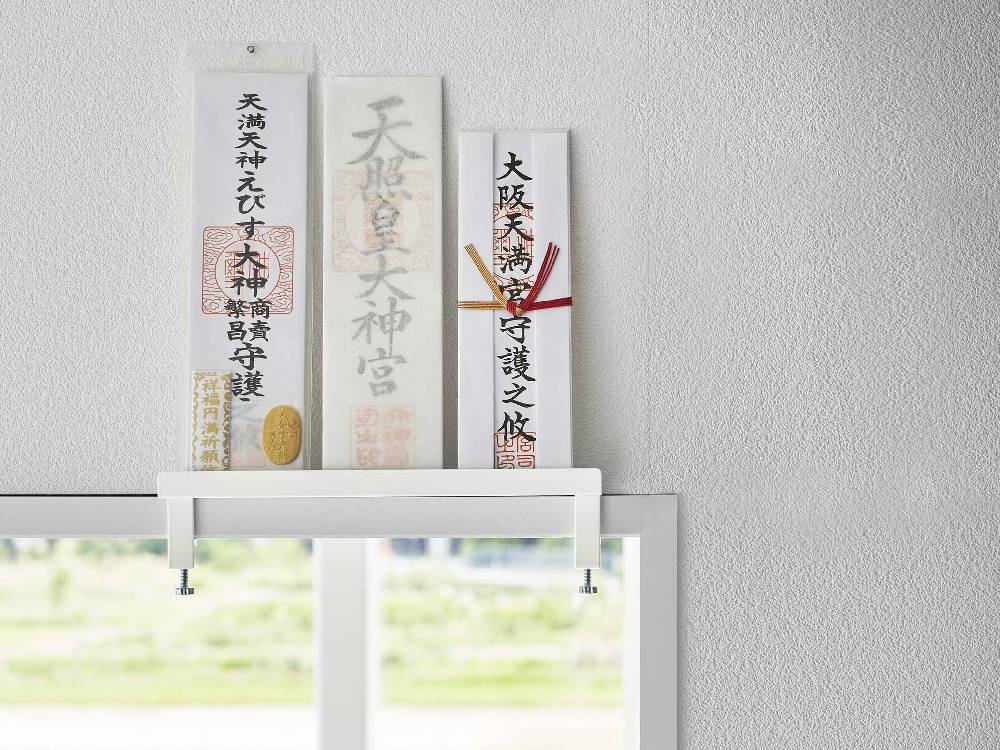 天満天神えびす大神商売繁昌守護
祥福円満祈願
天照皇大神宮
大阪天満宮守護之攸